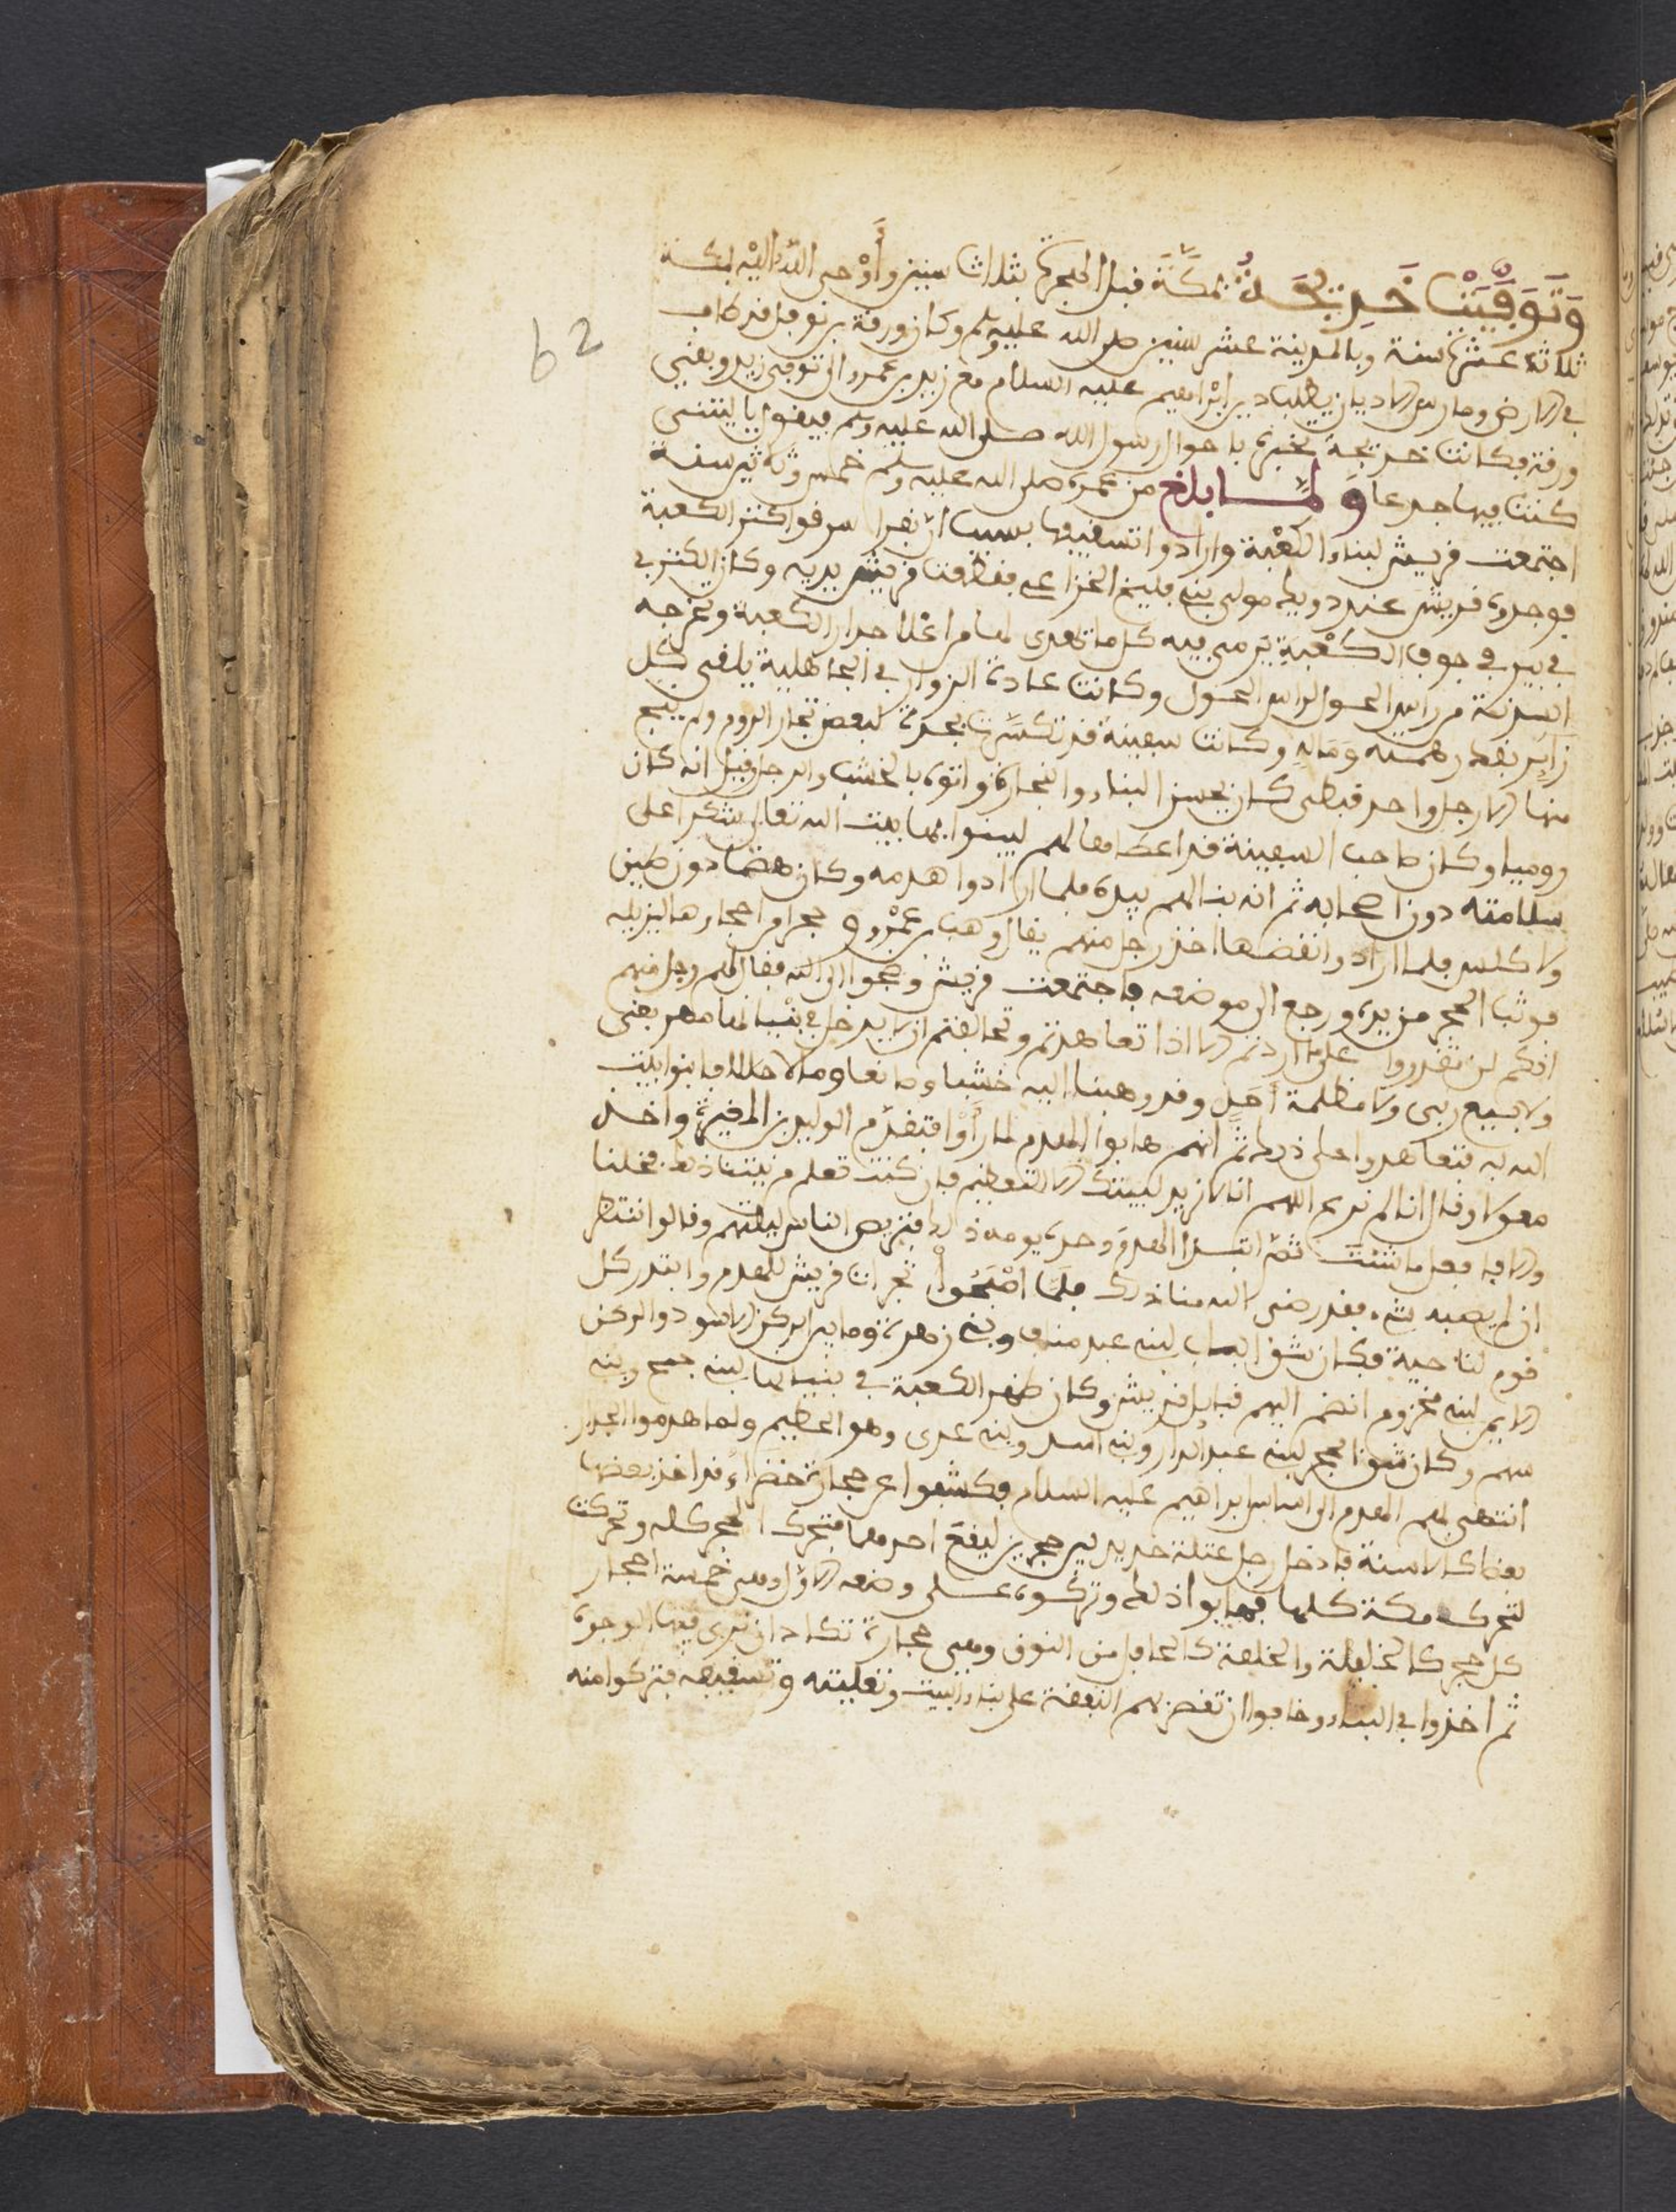 وَتُوُفِّيَتْ خَدِيجَةُ بمَكَّةَ قبل الهجرة بثلاث سنين وأَوْحى اللهُ إليْه بمكة
62
ثلاثة عشرة سنة وبالمدينة عشر سنين صلى الله عليه وسلم وكان ورقة بن نوفل قد طاف
في الارض ومارس الاديان يطلب دين ابْراهيم عليه السلام مع زيد بن عمرو الى توفي زيد وبقي
ورقة فكانت خديجة تخبره باحوال رسول الله صلى الله عليه وسلم فيقول يا ليتني
كنت فيها جدعا وَلمَّا بلغ من عمره صلى الله عليه وسلم خمس وثلاثين سنة
اجتمعت قريش لبناء الكعْبة وارادوا تسقيفها بسبب انّ نفرا سرقوا كنز الكعبة
فوجده قريش عند دويك مولى بني مليح الخزاعي فقطعت قريش يديه وكان الكنز في
في بير في جوف الكعْبة يَرمى فيه كل ما يهدى لها من اعْلا جدار الكعبة وتخرجه
السدنة من راس الحول لراس الحول وكانت عادة الزوار في الجاهلية يلقي كل
زاير بقدر همته وَمَالِهِ وكانت سفينة قد تكسَّرت بجدة لبعض تجار الروم ولم ينج
منها الا رجل واحد قبطي كان يحسن البناء والنجارة فاتوه بالخشب والرجل وقيل انه كان
روميا وكان صاحب السفينة فد اعطاها لهم ليبنوا بها بيت الله تعالى شكرا على
سلامته دون اصحابه ثم انه بنا لهم بيده فلما ارادوا هدمه وكان هضما دون طين
ولا كلس فلما ارادوا نقضها اخذ رجل منهم يقال وهب بن عَمْرو حجرا من احجارها ليزيله
فوثب الحجر من يده ورجع الى موضعه فاجتمعت قريش وضجوا الى الله فقال لهم رجل منهم
انكم لن تقدروا على ما اردتم الا اذا تعاهدتم وتحالفتم ان لا يدخل في بنْيانها مهر بغي
ولا بيع ربى ولا مظلمة أحَدٍ وقد وهبنا اليه خشبا وصانعا ومالا حلالا فابنوا بيت
الله به فتعاهدوا على ذلك ثم انهم هابوا الهدم لما رأَوْا فتقدّم الوليد بن المغيرة واخذ
معولا وقال انا لم نرع اللهم انا لا نريد لبيتك الا التعظيم فان كنت تعلم من نيتنا ذلك فخلنا
والا فافعل ما شئت ثمّ ابتدا الهدم وَحده يومه ذلك فتربص الناس ليلتهم وقالوا ننتظر
ان لم يصبه شيء فقد رضى الله منا ذلك فلمَّا اصْبَحُوا تجزات قريش للهدم وابتدر كل
قوم لناحية فكان شق الباب لبني عبد مناف وبني زهرة وما بين الركن الاسود والركن
الايمن لبني مخزوم انضم اليهم قبايل قريش وكان ظهر الكعبة في بنيانها لبني جمح وبني
سهم وكان شق الحجر لبني عبد الدار وبني اسد وبني عدى وهو الحطيم ولما هدموا الجدار
انتهى بهم الهدم الى اساس ابراهيم عليه السلام فكشفوا عن حجارة خضراء قد اخذ بعضها
بعضا كالاسنة فادخل رجل عتلة حديد بين حجرين ليقلع احدهما فتحرك الحجر كله وتحركت
لتحركه مكة كلها فهابوا ذلك وتركوه على وضعه الاول وهي خمسة احجار
كل حجر كالخليفة والخلفة كالحامل من النوق وهي حجارة تكاد ان ترى فيها الوجوه
ثم اخذوا في البناء وخافوا ان تقصر بهم النفقة على بناء البيت وتعليته وتسقيفه فتركوا منه